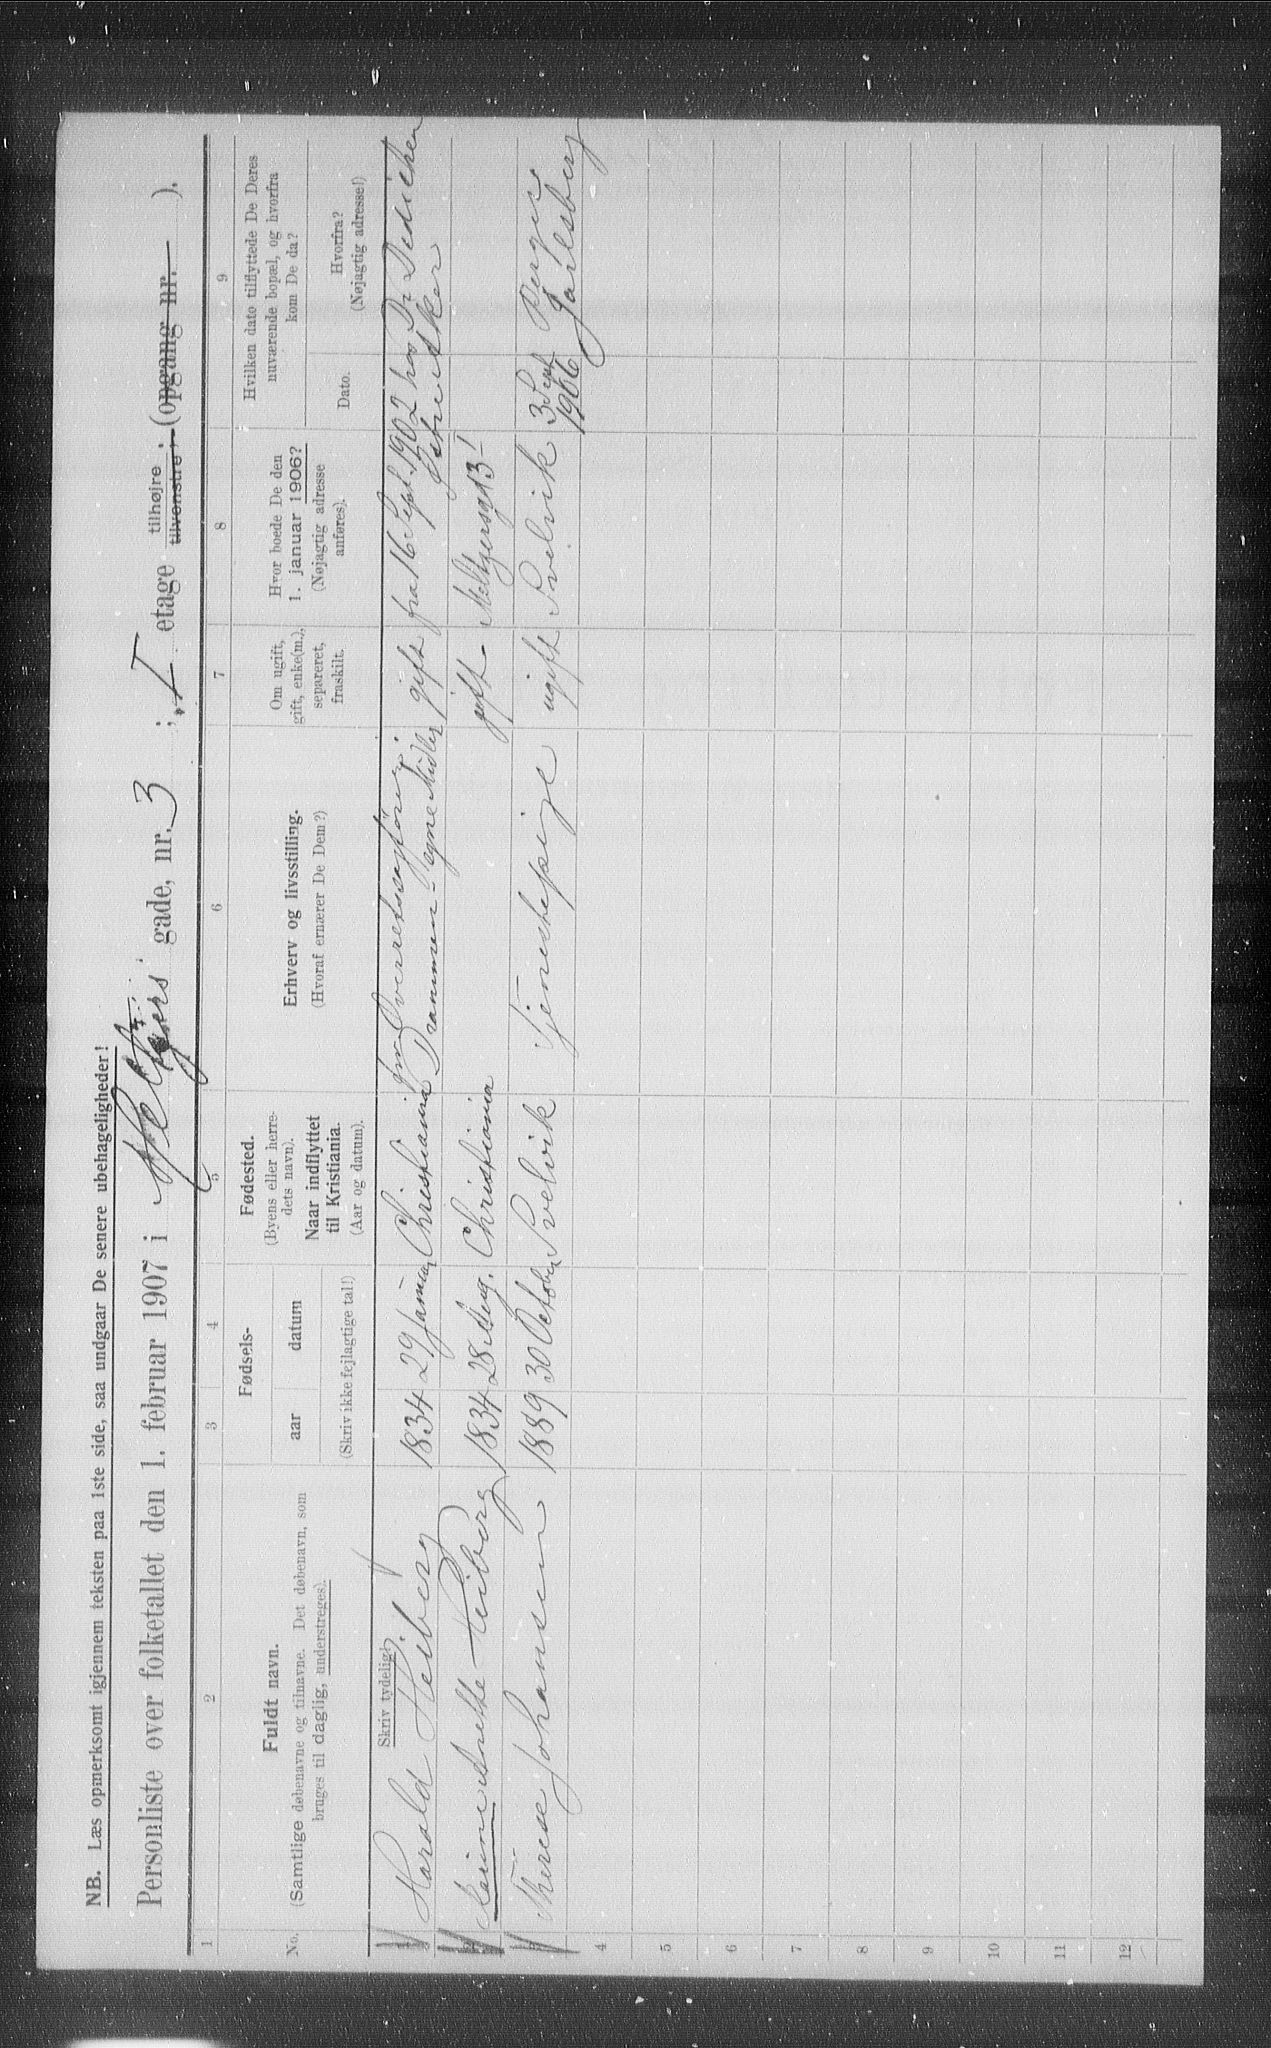 NB. Læs opmerksomt igjennem teksten paa 1ste side, saa undgaar De senere ubehageligheder!
Personliste over folketallet den 1. februar 1907 i Meltzers gade, nr. 3 ; I etage tilhøjre tilvenstre ; (opgang nr. ).
1 2 3 4 5 6 7 8 9
No.
Fuldt navn.
(Samtlige døbenavne og tilnavne. Det døbenavn, som
bruges til daglig, understreges).
Skriv tydelig!
Fødsels-
aar datum
(Skriv ikke fejlagtige tal!)
Fødested.
(Byens eller herre-
dets navn).
Naar indflyttet
til Kristiania.
(Aar og datum).
Erhverv og livsstilling.
(Hvoraf ernærer De Dem?)
Om ugift,
gift, enke(m.),
separeret,
fraskilt.
Hvor boede De den
1. januar 1906?
(Nøjagtig adresse
anføres).
Hvilken dato tilflyttede De Deres
nuværende bopæl, og hvorfra
kom De da?
Dato.
Hvorfra?
(Nøjagtig adresse!)
1 Harald Heiberg 1834 29 Januar Christiania Overretssagfører Drammen - egne Midler gift fra 16 Sept. 1902 hos Dr Dedichen
2 Karine Anette Heiberg 1834 28 Aug. Christiania gift - Meltzersgt 3 I
3 Therese Johansen 1889 30 October Svelvik Tjenestepige ugift Svelvik 3 Sept 1906 Berger Jarlsberg
4
5
6
7
8
9
10
11
12